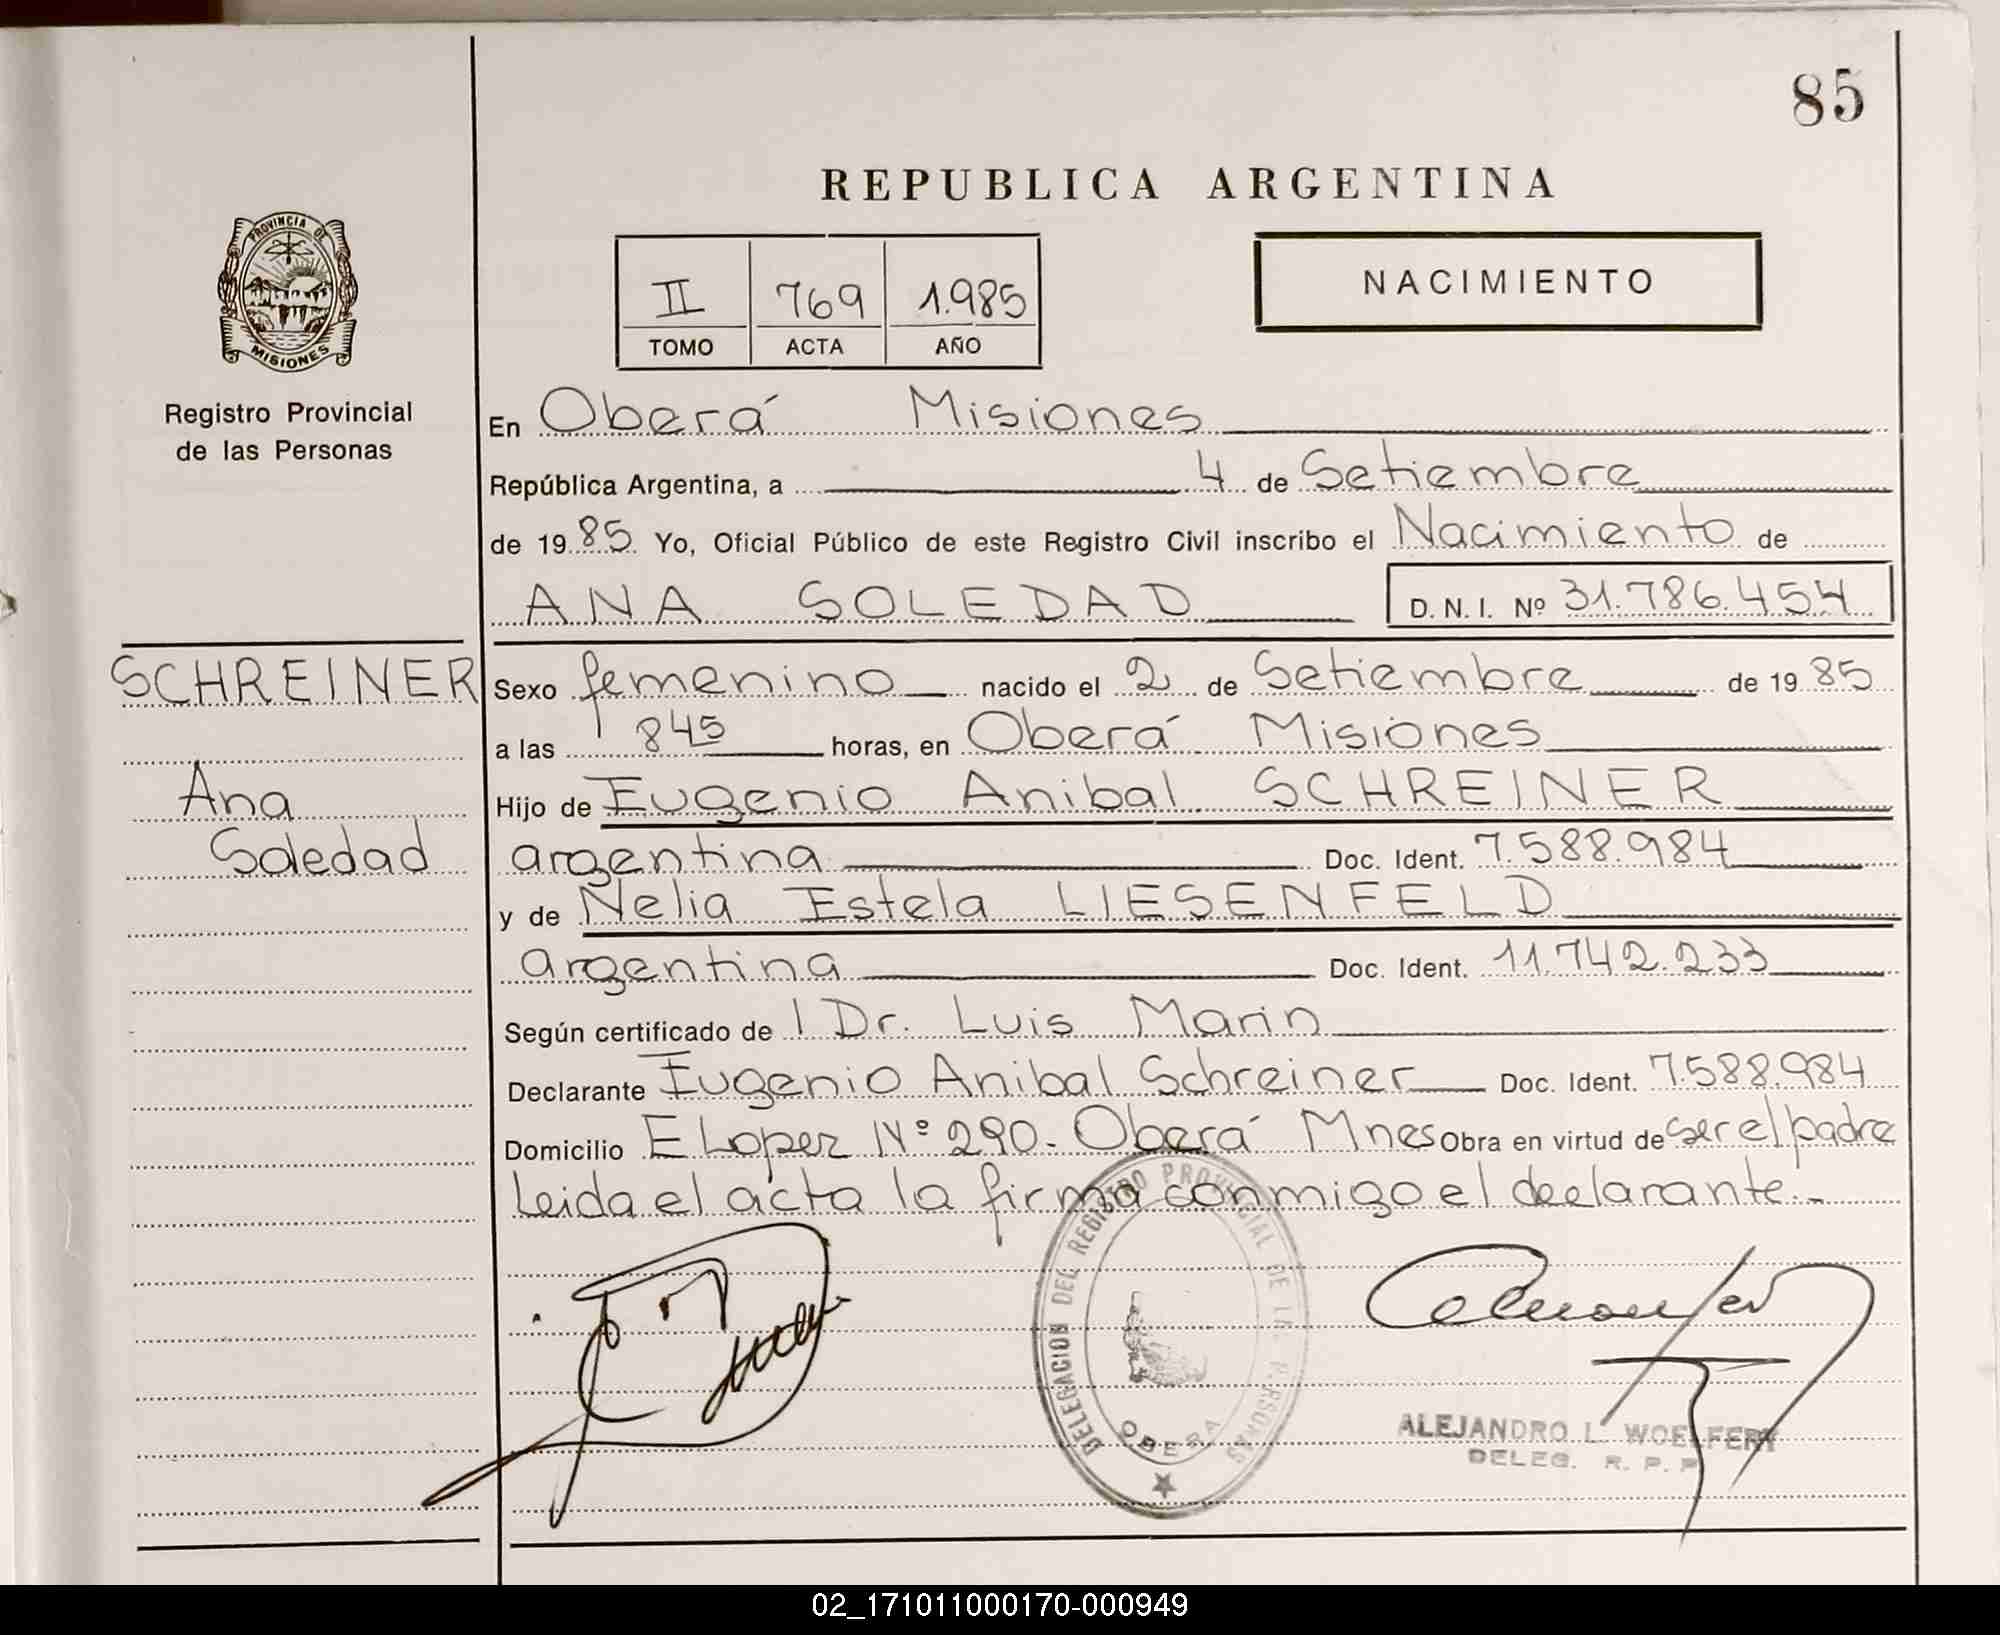 85
REPUBLICA ARGENTINA
PROVINCIA DE
MISIONES
Registro Provincial
de las Personas
II 769 1.985
TOMO ACTA AÑO
NACIMIENTO
En Oberá Misiones
República Argentina, a 4 de Setiembre
de 1985 Yo, Oficial Público de este Registro Civil inscribo el Nacimiento de
ANA SOLEDAD D. N. I. Nº 31.786.454
SCHREINER
Ana
Soledad
Sexo femenino nacido el 2 de Setiembre de 1985
a las 845 horas, en Oberá Misiones
Hijo de Eugenio Anibal SCHREINER
argentina Doc. Ident. 7.588.984
y de Nelia Estela LIESENFELD
argentina Doc. Ident. 11.742.233
Según certificado de l Dr. Luis Marin
Declarante Eugenio Anibal Schreiner Doc. Ident. 7.588.984
Domicilio E Lopez Nº 290. Oberá Mnes Obra en virtud de ser el padre
Leida el acta la firma conmigo el declarante.-
DELEGACION DEL REGISTRO PROVINCIAL DE LAS PERSONAS
OBERA
ALEJANDRO L. WOELFERT
DELEG. R. P. P.
02_171011000170-000949